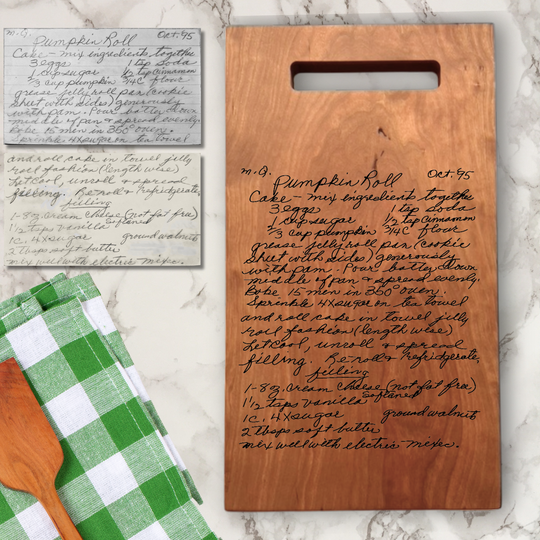 m.Q. Oct. 95
Pumpkin Roll
Cake - mix ingredients together
3 eggs 1 tsp soda
1 cup sugar 1/2 tsp cinnamon
2/3 cup pumpkin 3/4 C flour
grease jelly roll pan (cookie
sheet with sides) generously
with pam. Pour batter down
middle of pan & spread evenly.
Bake 15 men in 350° oven.
Sprinkle 4X sugar on tea towel
and roll cake in towel jelly
roll fashion (length wise)
Let cool, unroll & spread
filling. Reroll & refridgerate,
filling
1-8 oz. cream cheese (not fat free)
softened
1 1/2 tsps vanilla
1 c. 4X sugar ground walnuts
2 tbsps soft butter
mix well with electric mixer.
m.Q. Oct. 95
Pumpkin Roll
Cake - mix ingredients together
3 eggs 1 tsp soda
1 cup sugar 1/2 tsp cinnamon
2/3 cup pumpkin 3/4 C flour
grease jelly roll pan (cookie
sheet with sides) generously
with pam. Pour batter down
middle of pan & spread evenly.
Bake 15 men in 350° oven.
Sprinkle 4X sugar on tea towel
and roll cake in towel jelly
roll fashion (length wise)
Let cool, unroll & spread
filling. Reroll & refridgerate,
filling
1-8 oz. cream cheese (not fat free)
softened
1 1/2 tsps vanilla
1 c. 4X sugar ground walnuts
2 tbsps soft butter
mix well with electric mixer.